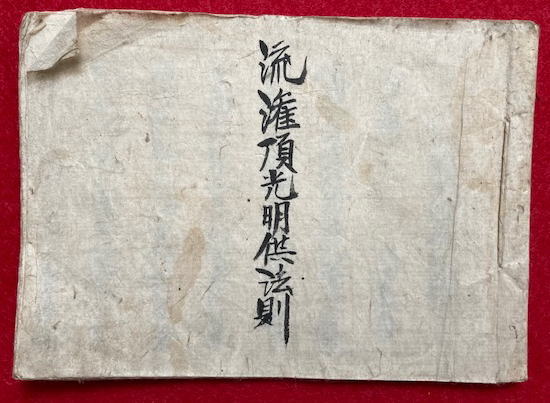 流灌頂光明供法則